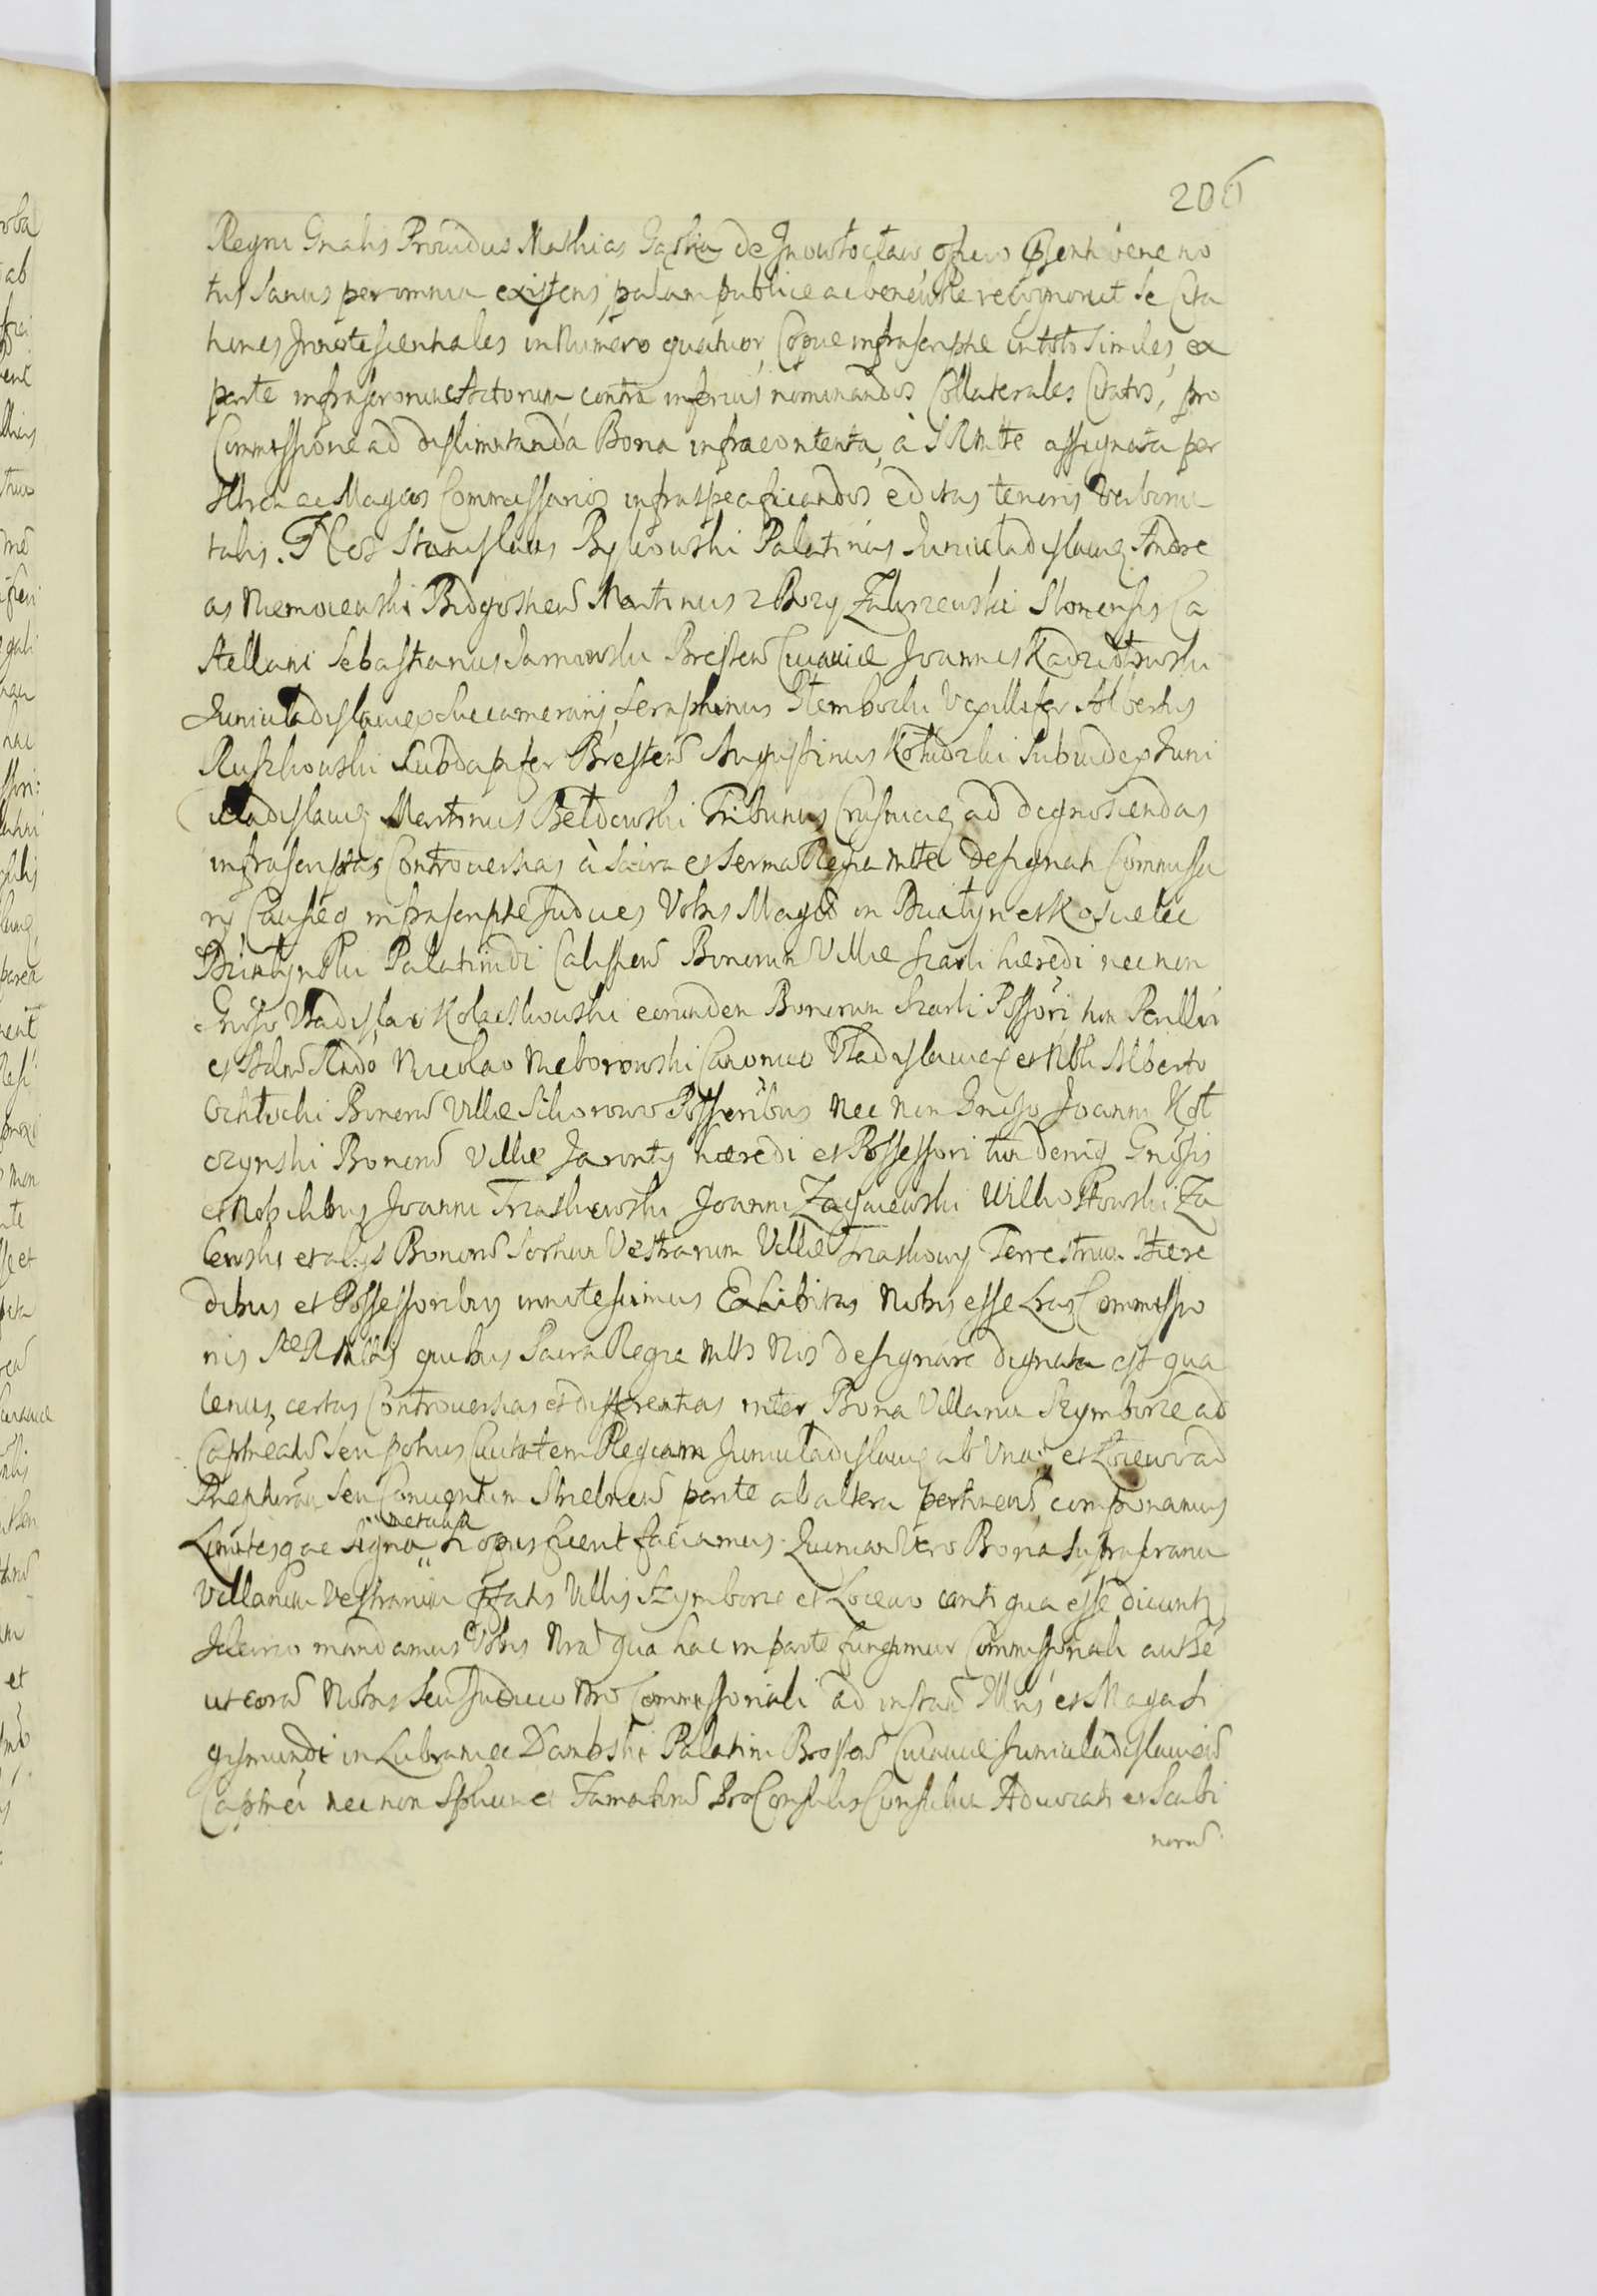 206
Regni Gnalis Prouidus Mathias de Jnowłocław offico pñti bene no
tus sanus per omnia existens, palam publice ac beneuole recognouit se Cita
tiones Jnnotescentiales in Numero quatuor Copiæ infrascriptæ in toto similes, ex
parte infrascr Actorum contra inferius nominandos Collaterales Citatos, pro
Commissione ad dislimitanda Bona infracontenta, à S R Mtte assignata per
Illres ac Magcos Commissarios infraspecificandos editas tenoris Verborum
talis. Nos Stanislaus Bykowski Palatinus Juniuladislauieñ Andre
as Niemoiewski Bidgostień Martinus z Bozy Słonensis Ca
stellani Sebastianus Jarnowski Bresteñ Cuiauiæ Joannes Kadzidłowski
Juniuladislauieñ Succamerarij, Seraphinus Stembocki Vexillifer Albertus
Ruszkowski Subdapifer Bresteñ Augustinus Kołudzki Subiudex Juni
uladislauieñ Martinus Bełdowski Tribunus Crusuicieñ ad dignoscendas
infrascriptas Controuersias à Sacra et Serma Regia Mtte Designati Commissa
rij Causæq infrascriptæ Judices Vobis Magco in Buczyn et Koscielec
Palatinidi Calisień Bonorum Villæ Szarli hæredi nec non
Gnoso Vladislao Kołaczkowski eorundem Bonorum Szarli Possori tum Perillri
et Adm Rndo Nicolao Nieborowski Canonico Vladislauieñ et Nbli Alberto
Ochłocki Bonorũ Villæ Sikorowo Possoribus Nec Non Gnoso Joanni Kot
czynski Bonorũ Villæ Jaronty hæredi et Possessori tum deniq Gnosis
et Nobilibus Joanni Trzaskowski Joanni Zagaiewski Wilkostowski Za
lewski et alijs Bonorũ Sortium Vestrarum Villæ Trzaskowy Terrestrium Hære
dibus et Possessoribus innotescimus Exhibitas Nobis esse Lras Commissio
nis Sæ R Mttis quibus Sacra Regia Mtts Nos designare dignata est qua
tenus, certas Controuersias et differentias inter Bona Villarum Szymborze ad
Captneatũ seu potius Ciuitatem Regiam Juniuladislauieñ ab Vna, et Łoiewo ad
Præpturam seu Conuentum Strzelneñ parte ab altera pertineñ componamus
Limitesque signa
metalia
si opus fuerit faciamus. Quoniam Vero Bona suprafranu
Villarum Vestrarum pfatis Villis Szymborze et Łoiewo contigua esse dicunt,
Jdcirco mandamus Vobis Nra qua hac in parte fungimur Commissoriali autte
ut corã Nobis seu Judicio Nro Commissoriali ad instañ Illris et Magci Si
gismundi in Lubraniec Dambski Palatini Bresteñ Cuiauiæ Juniuladislauieñ
Captnei nec non Spblium et Famatorũ ProConsulis Consulum Aduocati et Scabi
norũ